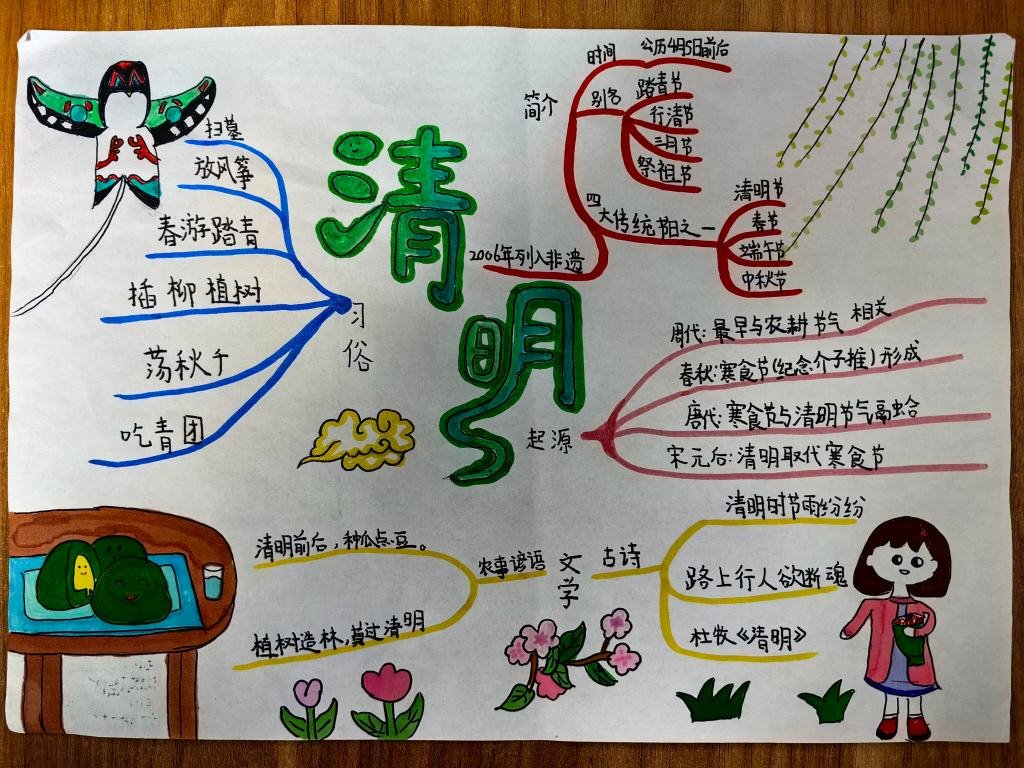 清明
简介
时间
公历4月5日前后
别名
踏青节
行清节
三月节
祭祖节
四大传统节日之一
清明节
春节
端午节
中秋节
2006年列入非遗
习俗
扫墓
放风筝
春游踏青
插柳植树
荡秋千
吃青团
起源
周代:最早与农耕节气相关
春秋:寒食节(纪念介子推)形成
唐代:寒食节与清明节气融合
宋元后:清明取代寒食节
文学
农事谚语
清明前后,种瓜点豆。
植树造林,莫过清明
古诗
清明时节雨纷纷
路上行人欲断魂
杜牧《清明》